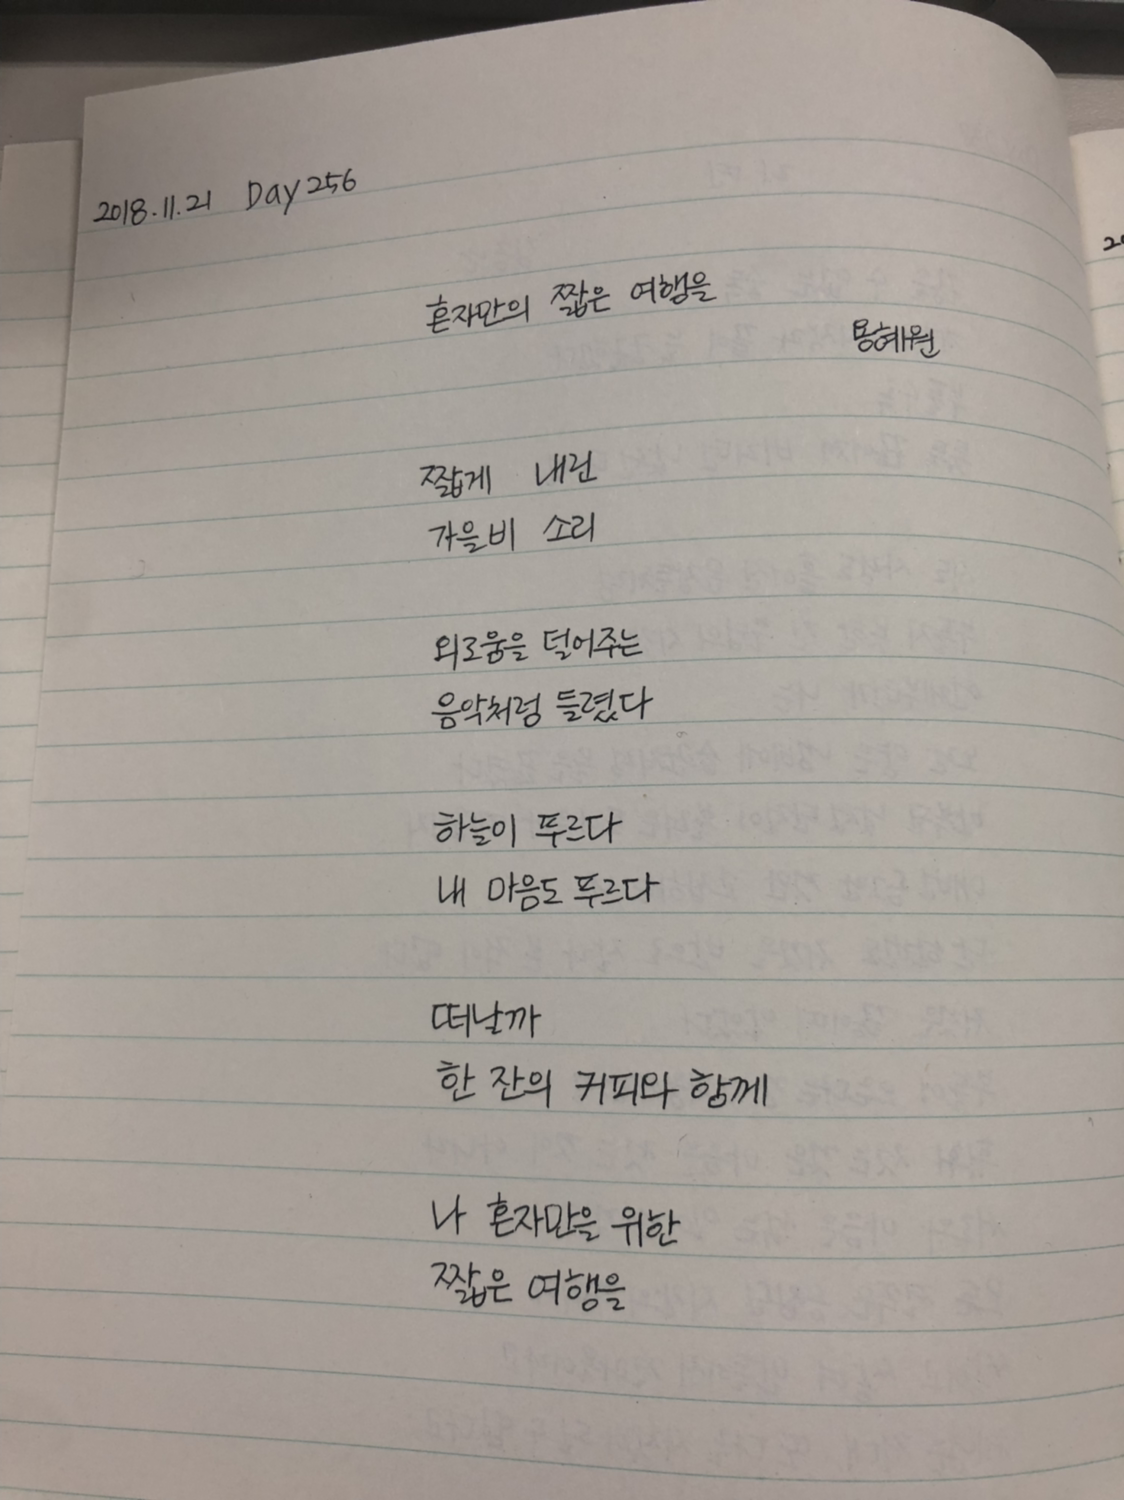 2018.11.21 Day 256
혼자만의 짧은 여행을
용혜원
짧게 내린
가을비 소리
외로움을 덜어주는
음악처럼 들렸다
하늘이 푸르다
내 마음도 푸르다
떠날까
한 잔의 커피와 함께
나 혼자만을 위한
짧은 여행을